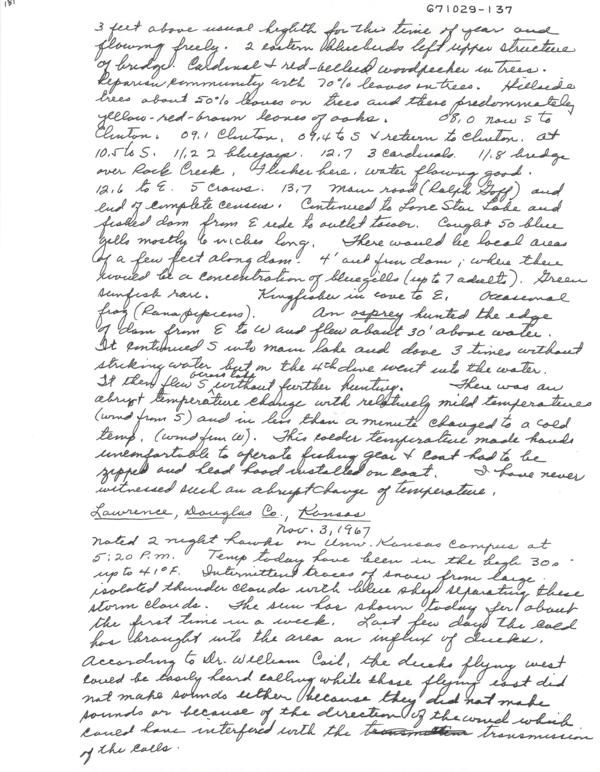 181
671029-137
3 feet above usual heighth for this time of year and
flowing freely. 2 eastern bluebirds left upper structure
of bridge. Cardinal & red-bellied woodpecker in trees.
Reparian community with 70% leaves on trees. Hillside
trees about 50% leaves on trees and these predominately
yellow-red-brown leaves of oaks. 08.0 now S to
Clinton. 09.1 Clinton. 09.4 to S & return to Clinton. at
10.5 to S. 11.2 2 bluejays. 12.7 3 cardinals. 11.8 bridge
over Rock Creek, Flicker here, water flowing good.
12.6 to E. 5 crows. 13.7 main road (Ralph Goff) and
end of complete census. Continued to Lone Star Lake and
fished dam from E side to outlet tower. Caught 50 blue
gills mostly 6 inches long. There would be local areas
of a few feet along dam, 4' out from dam, where there
would be a concentration of bluegills (up to 7 adults). Green
sunfish rare. Kingfisher in cove to E. Occasional
frog (Rana pipiens). An osprey hunted the edge
of dam from E to W and flew about 30' above water.
It continued S into main lake and dove 3 times without
striking water but on the 4th dive went into the water.
It then flew S across lake without further hunting. There was an
abrupt temperature change with relatively mild temperatures
(wind from S) and in less than a minute changed to a cold
temp. (wind from W). This colder temperature made hands
uncomfortable to operate fishing gear & coat had to be
zipped and head hood installed on coat. I have never
witnessed such an abrupt change of temperature.
Lawrence, Douglas Co., Kansas
Nov. 3, 1967
Noted 2 night hawks on Univ. Kansas Campus at
5:20 P.M. Temp today have been in the high 30s
up to 41°F. Intermittent traces of snow from large
isolated thunder clouds with blue sky separating these
storm clouds. The sun has shown today for about
the first time in a week. Last few days the cold
has brought into the area an influx of ducks.
According to Dr. William Coil, the ducks flying west
could be easily heard calling while those flying east did
not make sounds either because they did not make
sounds or because of the direction of the wind which
could have interfered with the transmission
of the calls.